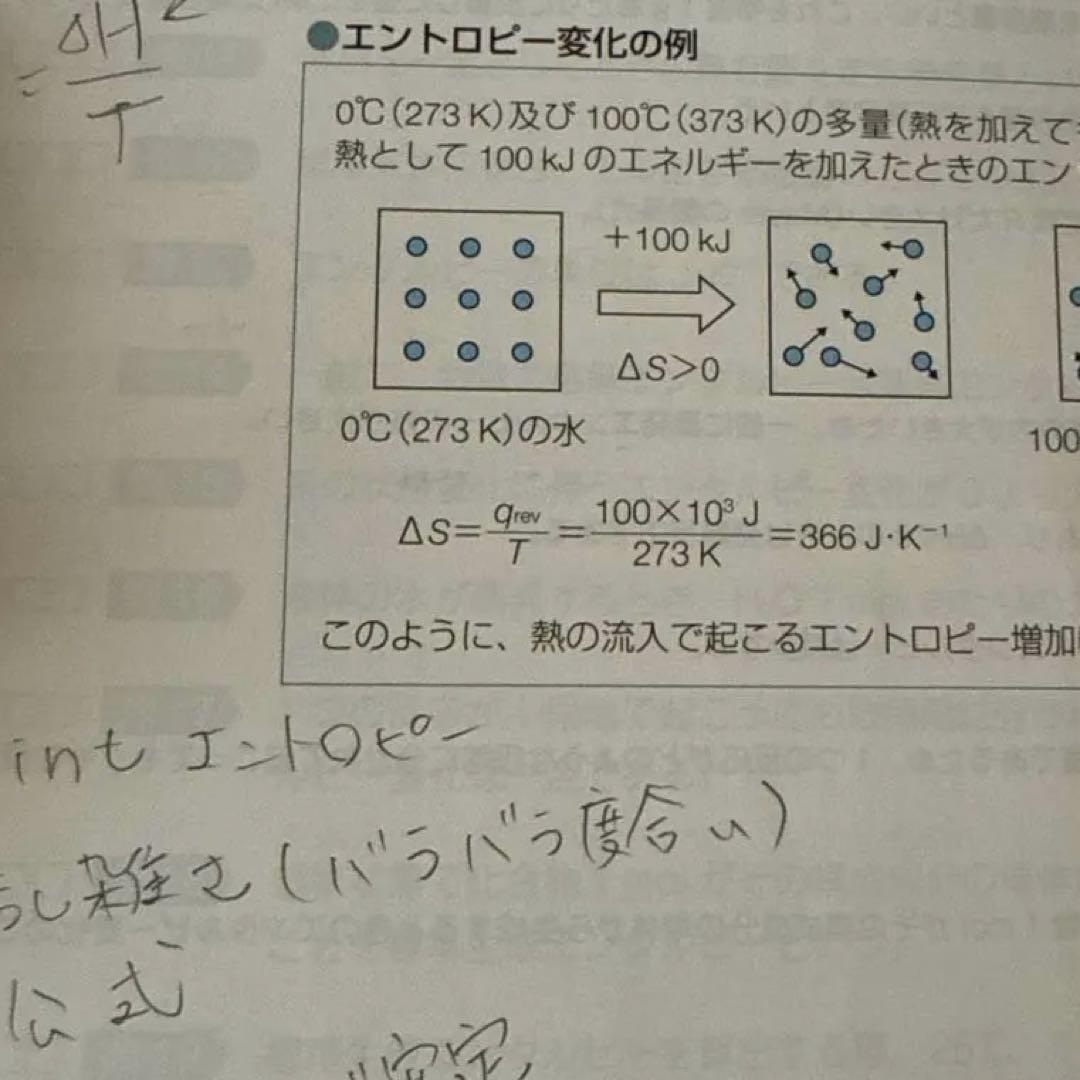 ΔH
= ―
T
●エントロピー変化の例
0℃(273 K)及び 100℃(373 K)の多量(熱を加えても
熱として 100 kJ のエネルギーを加えたときのエン
+100 kJ
ΔS>0
0℃(273 K)の水
100
ΔS=qrev/T=100×10³ J/273 K=366 J·K⁻¹
このように、熱の流入で起こるエントロピー増加
int エントロピー
雑さ(バラバラ度合い)
公式
安定